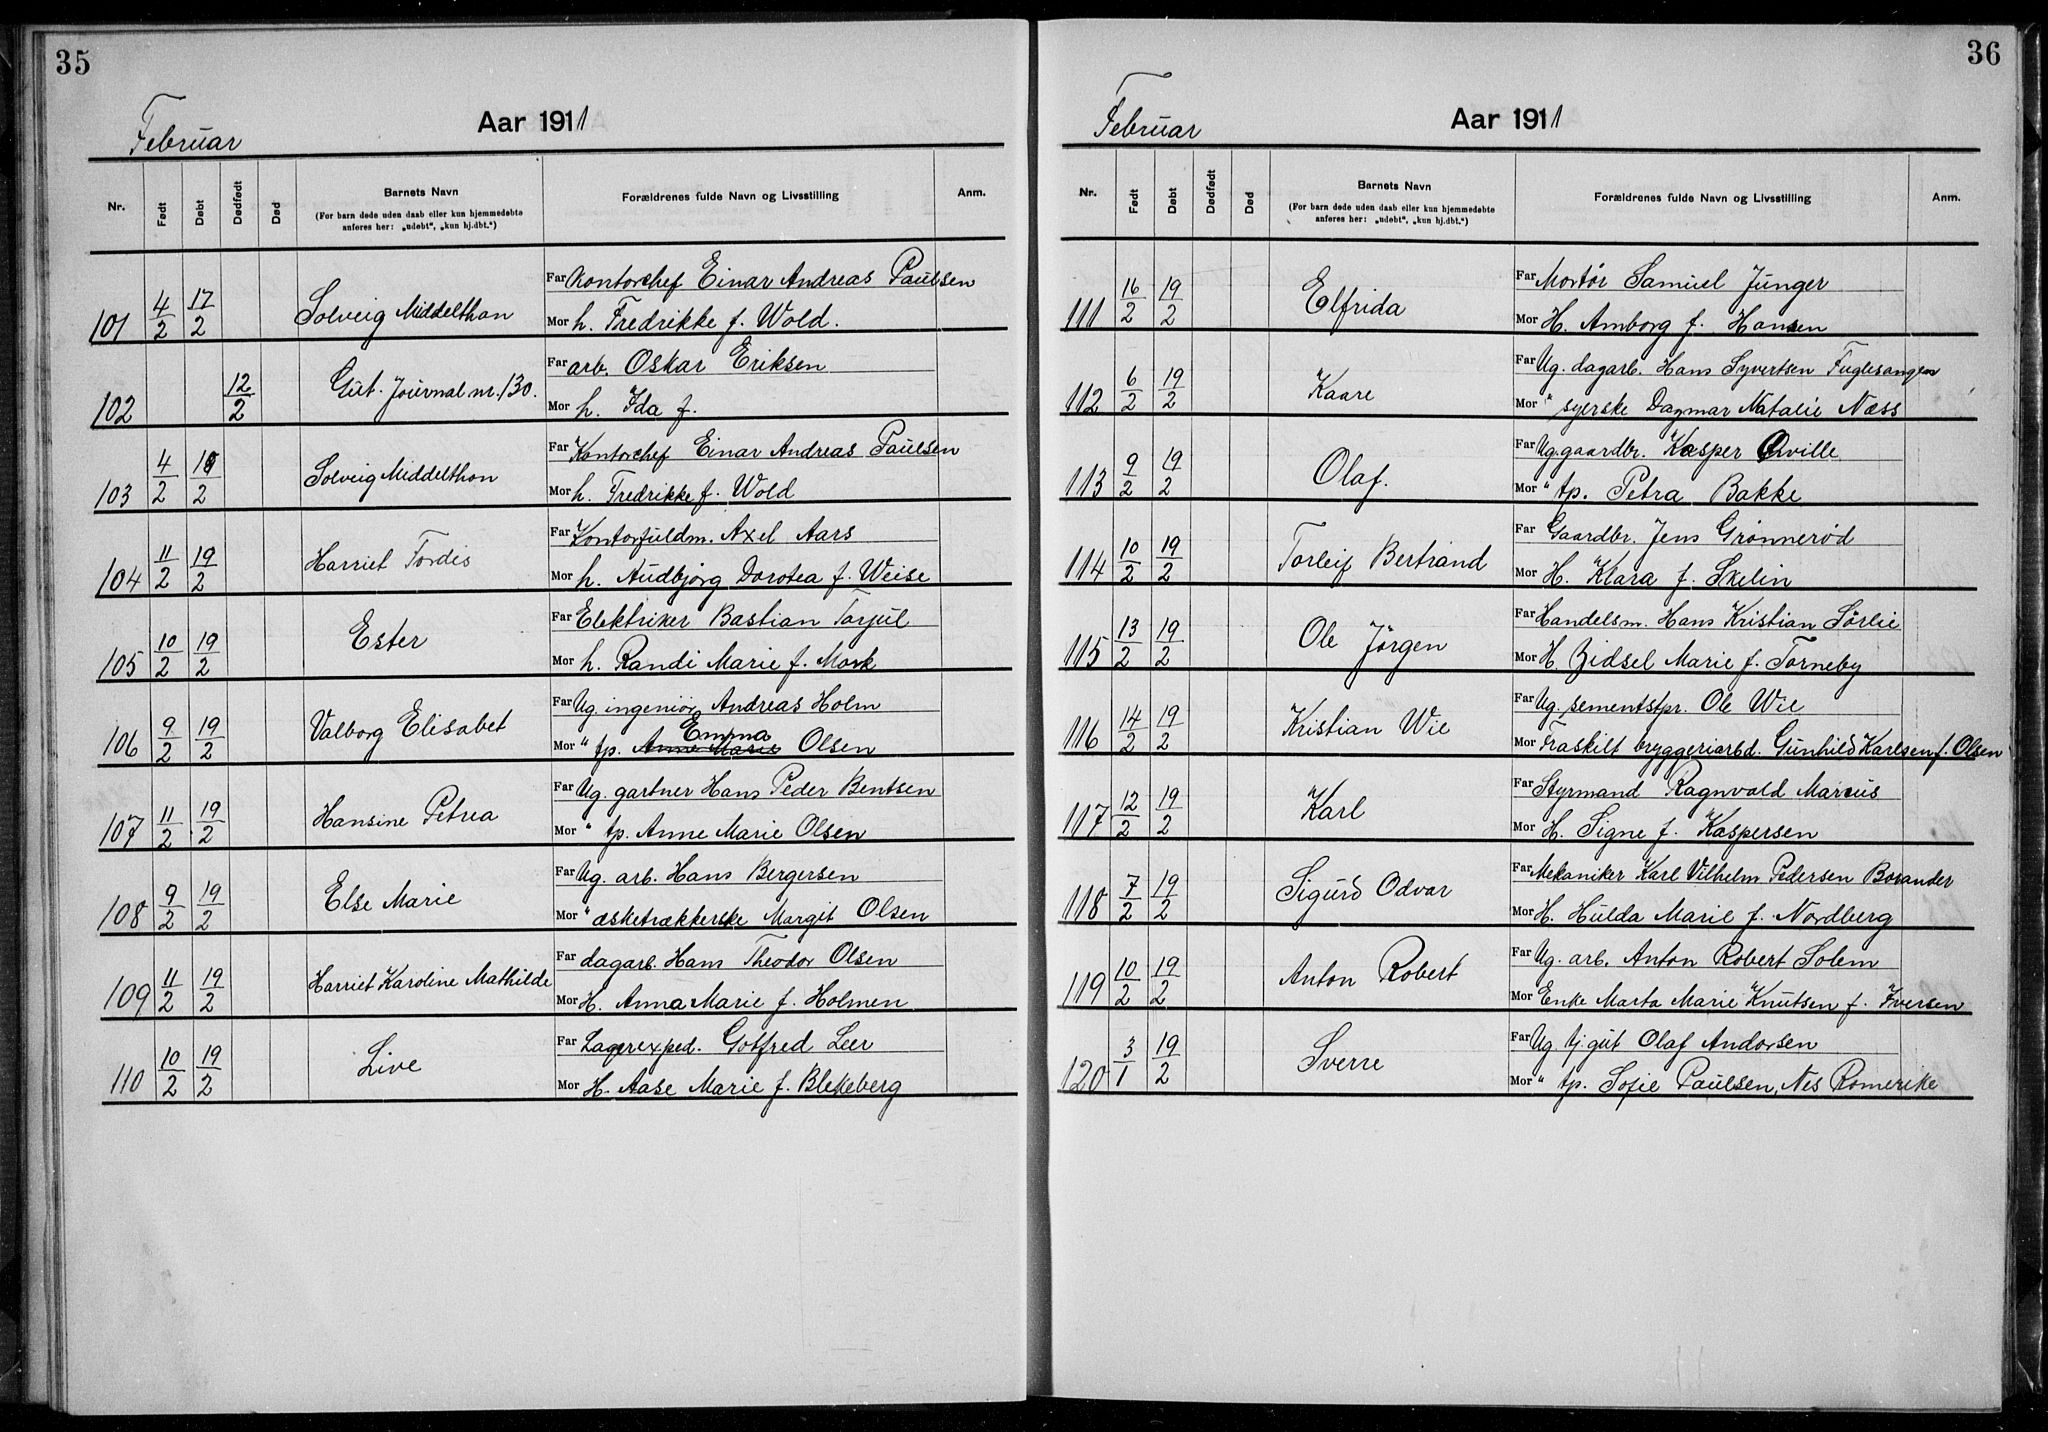 35
Februar
Aar 1911
Nr.
Født
Døbt
Dødfødt
Død
Barnets Navn
(For barn døde uden daab eller kun hjemmedøbte
anføres her: „udøbt“, „kun hj.dbt.“)
Forældrenes fulde Navn og Livsstilling
Anm.
Far Kontorchef Einar Andreas Paulsen
101 4/2 17/2 Solveig Middelthon
Mor h. Fredrikke f. Wold.
Far arb. Oskar Eriksen
102 12/2 Gut. Journal nr. 130.
Mor h. Ida f.
Far Kontorchef Einar Andreas Paulsen
103 4/2 18/2 Solveig Middelthon
Mor h. Fredrikke f. Wold
Far Kontorfuldm. Axel Aars
104 11/2 19/2 Harriet Tordis
Mor h. Audbjørg Dorotea f. Weise
Far Elektriker Bastian Torjul
105 10/2 19/2 Ester
Mor h. Randi Marie f. Mork
Far Ug. ingeniør Andreas Holm
106 9/2 19/2 Valborg Elisabet
Emma
Mor " tp. Anne Marie Olsen
Far Ug. gartner Hans Peder Bentsen
107 11/2 19/2 Hansine Petrea
Mor " tp. Anne Marie Olsen
Far Ug. arb. Hans Bergersen
108 9/2 19/2 Else Marie
Mor " æsketrækkerske Margit Olsen
Far dagarb. Hans Theodor Olsen
109 11/2 19/2 Harriet Karoline Mathilde
Mor H. Anna Marie f. Holmen
Far Lagerexped. Gotfred Leer
110 10/2 19/2 Live
Mor H. Aase Marie f. Blekeberg
36
Februar
Aar 1911
Nr.
Født
Døbt
Dødfødt
Død
Barnets Navn
(For barn døde uden daab eller kun hjemmedøbte
anføres her: „udøbt“, „kun hj.dbt.“)
Forældrenes fulde Navn og Livsstilling
Anm.
Far Montør Samuel Junger
111 16/2 19/2 Elfrida
Mor H. Amborg f. Hansen
Far Ug. dagarb. Hans Syvertsen Fuglesangen
112 6/2 19/2 Kaare
Mor " syerske Dagmar Natalie Næss
Far Ug. gaardbr. Kasper Qville
113 9/2 19/2 Olaf.
Mor " tp. Petra Bakke
Far Gaardbr. Jens Grønnerød
114 10/2 19/2 Torleif Bertrand
Mor H. Klara f. Skelin
Far Handelsm. Hans Kristian Sørlie
115 13/2 19/2 Ole Jørgen
Mor H. Zidsel Marie f. Torneby
Far Ug. sementstpr. Ole Wie
116 14/2 19/2 Kristian Wie
Mor Fraskilt bryggeriarbd. Gunhild Karlsen f. Olsen
Far Styrmand Ragnvald Marcus
117 12/2 19/2 Karl
Mor H. Signe f. Kaspersen
Far Mekaniker Karl Vilhelm Pedersen Bosander
118 7/2 19/2 Sigurd Odvar
Mor H. Hulda Marie f. Nordberg
Far Ug. arb. Anton Robert Solem
119 10/2 19/2 Anton Robert
Mor Enke Marta Marie Knutsen f. Iversen
Far Ug. Vj.gut Olaf Andorsen
120 3/1 19/2 Sverre
Mor " tp. Sofie Paulsen, Nes Romerike